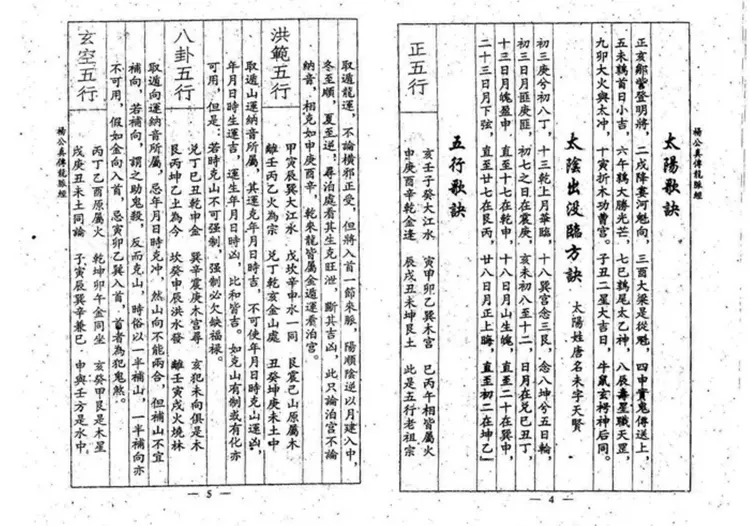 楊公真傳龍脈經
太陽歌訣
正亥鄒訾登明將，二戌降婁河魁向，三酉大梁是從魁，四申實鬼傳送上，
五未鶉首日小吉，六午鶉大勝光芒，七巳鶉尾太乙神，八辰壽星職天罡，
九卯大火與太沖，十寅折木功曹宮。子丑二星大吉日，牛鼠玄枵神后同。
太陰出沒臨方訣 太陽姓唐名未字天賢
初三庚兮初八丁，十三乾上月華臨，十八巽宮念三艮，念八坤兮五日輪，
初三日月匪庚匪，初七之日在震庚，亥未初八至十二，日月在兌巳丑丁，
十三日月魄盈申，直至十七在乾申，十八日月山生魄，直至二十在巽申，
二十三日月下弦，直至廿七在艮丙，廿八日月正上晦，直至初二在坤乙
五行歌訣
正五行
亥壬子癸大江水 寅甲卯乙巽木宮 巳丙午相皆屬火
申庚酉辛乾金逢 辰戌丑未坤艮土 此是五行老祖宗
— 4 —
取遁龍運，不論橫邪正受，但將入首一節來脈，陽順陰逆以月建入中，
冬至順，夏至逆，尋泊處看其生克旺泄，斷其吉凶，此只論泊宮不論
納音，相克如申庚酉辛，乾來龍皆屬金遁運看泊宮。
洪範五行
甲寅辰巽大江水 戊坎辛申水一同 艮震己山原屬木
離壬丙乙火為宗 兌丁乾亥金山處 丑癸坤庚未土中
取遁山運納音所屬，其運克年月日時吉，不可使年月日時克山運凶，
年月日時生運吉，運生年月日時凶，比和皆吉。如克山有制或有化亦
可用，但是：若時克山不可強制，強制必欠缺福祿。
八卦五行
兌丁巳丑乾申金 巽辛震庚木宮尋 亥犯未向俱是木
艮丙坤乙土為今 坎癸申辰洪水發 離壬寅戌火燒林
取遁向運納音所屬，忌年月日時克沖，然山向不能兩合，但補山不宜
補向，若補向，謂之助鬼殺，反而克山，時俗以一半補山，一半補向亦
不可用，假如金向入首，忌寅卯乙巽入首，首者為犯鬼煞。
玄空五行
丙丁乙酉原屬火 乾坤卯午金同坐 亥癸甲艮是木星
戌庚丑未土同論 子寅辰巽辛兼巳 申與壬方是水中
楊公真傳龍脈經
— 5 —